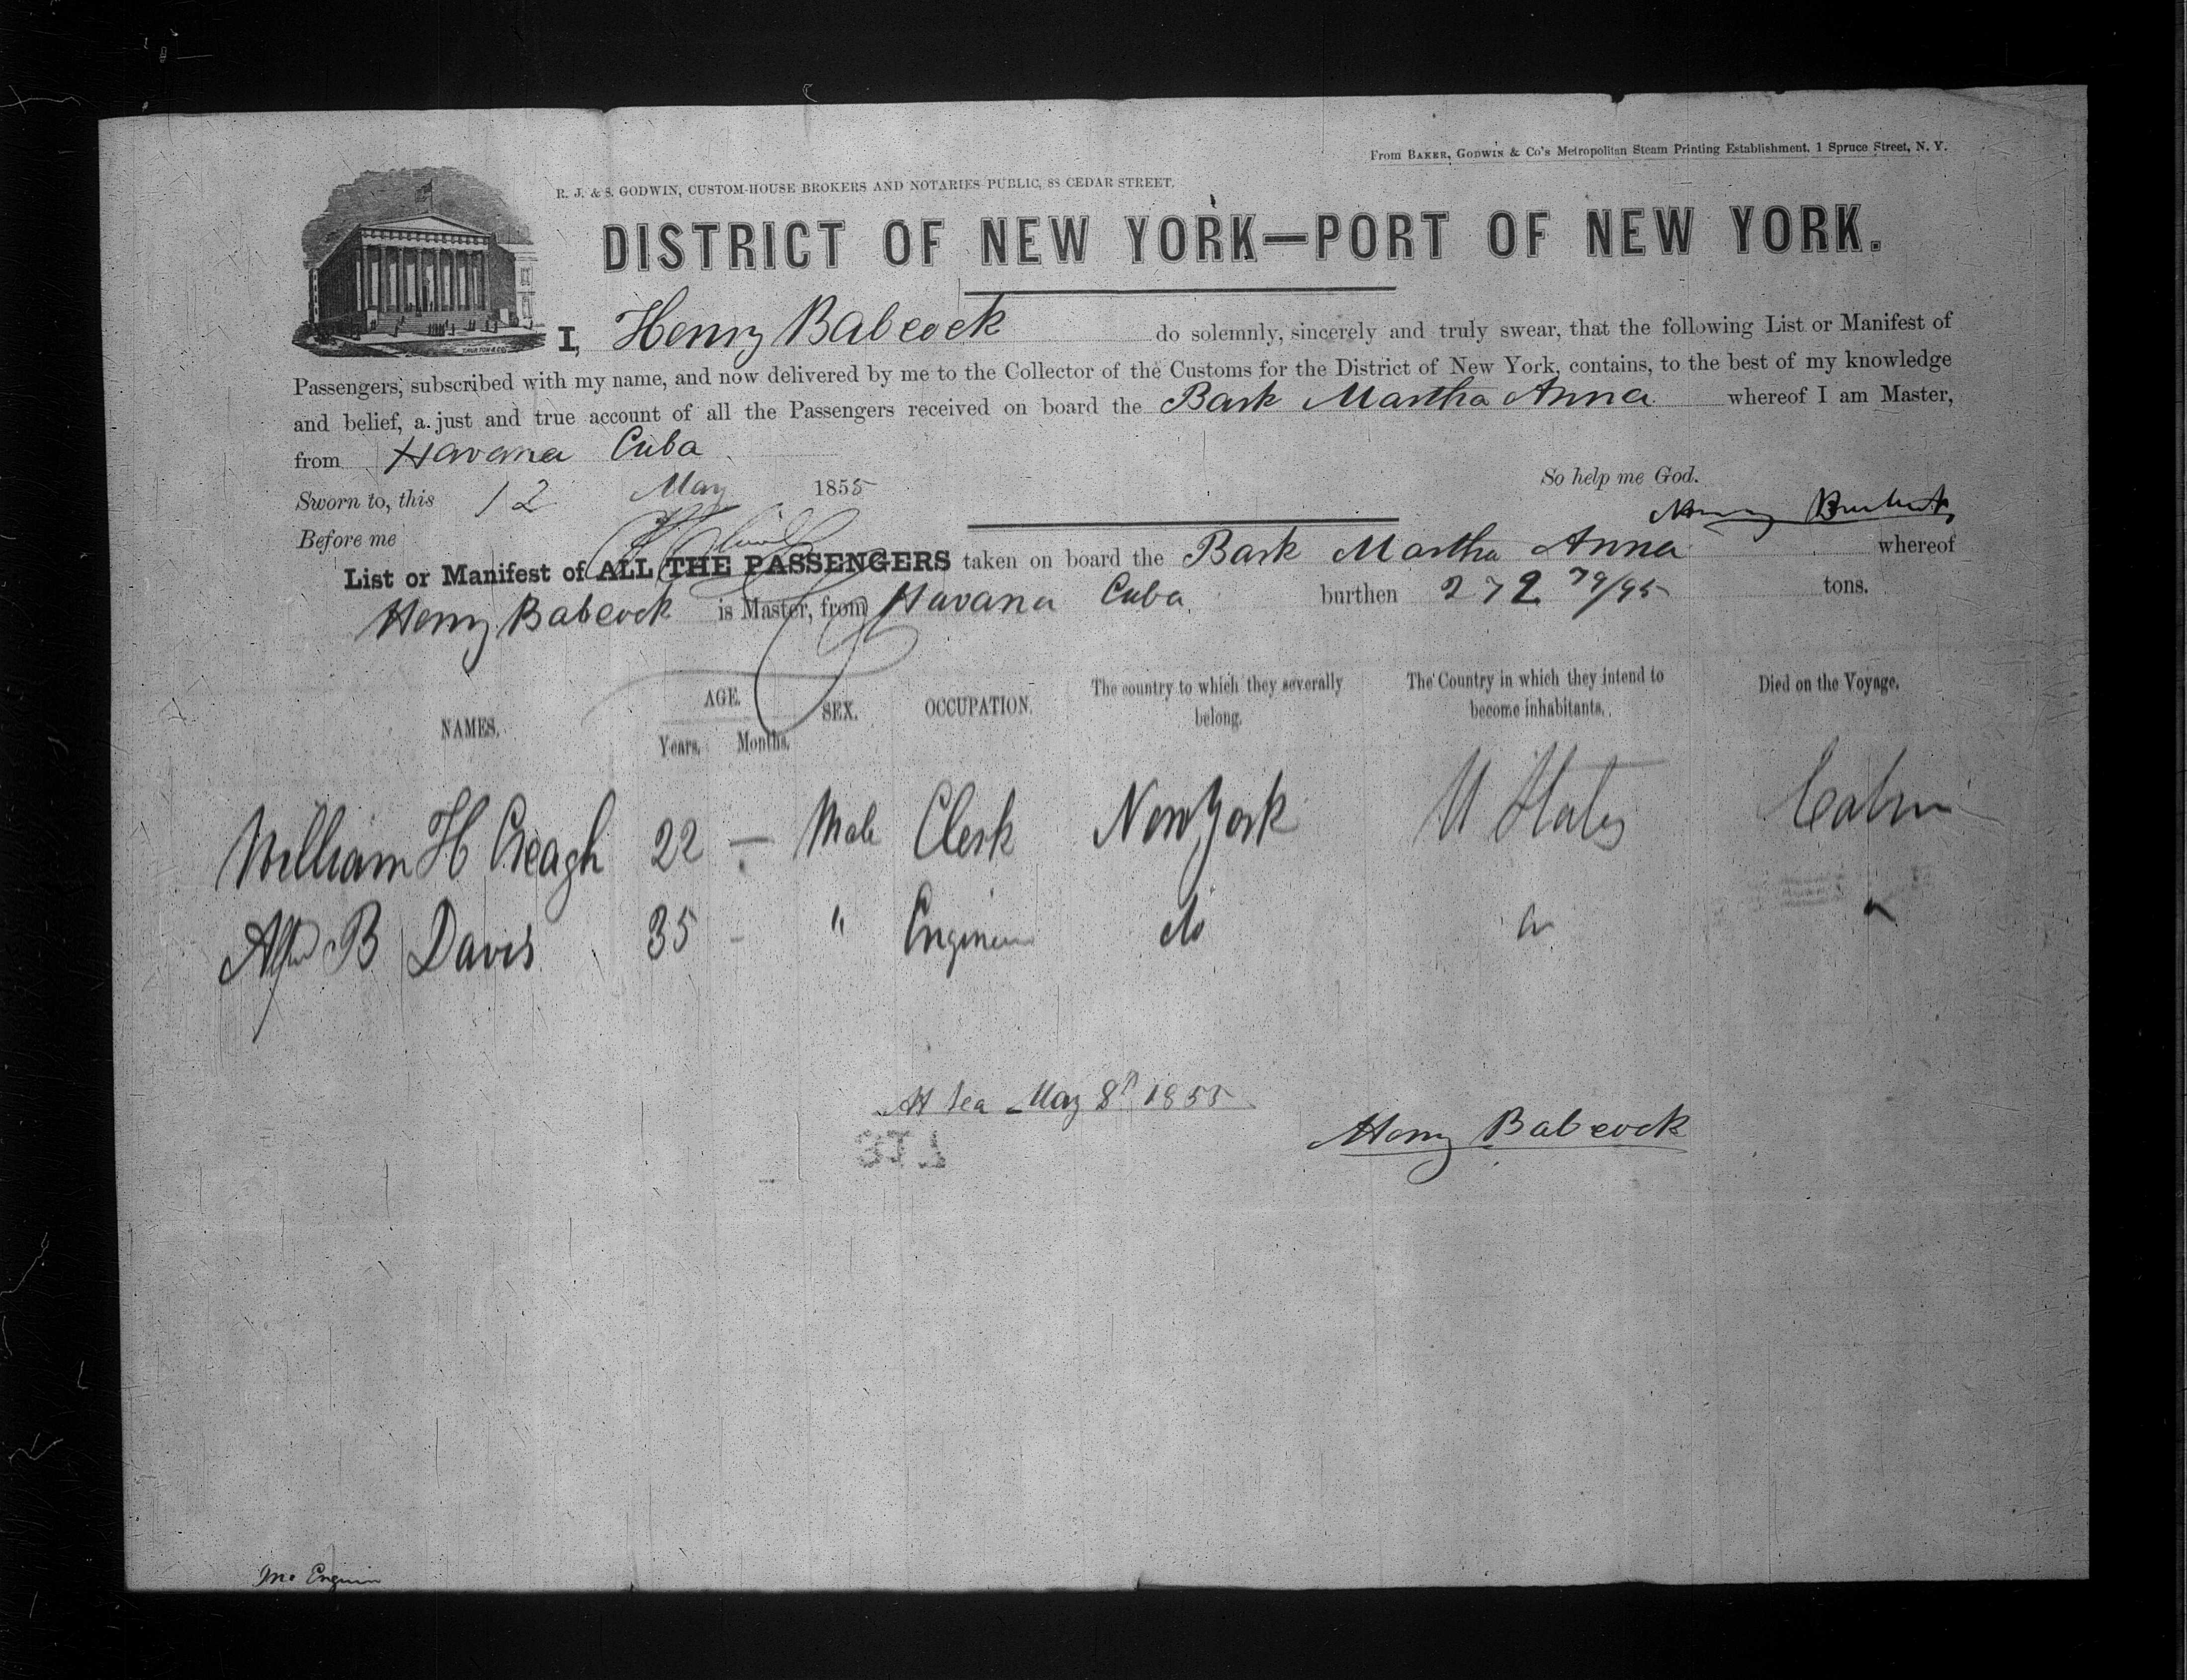 From BAKER, GODWIN & Co's Metropolitan Steam Printing Establishment, 1 Spruce Street, N. Y.
R. J. & S. GODWIN, CUSTOM-HOUSE BROKERS AND NOTARIES PUBLIC, 88 CEDAR STREET.
DISTRICT OF NEW YORK—PORT OF NEW YORK.
I, Henry Babcock do solemnly, sincerely and truly swear, that the following List or Manifest of
Passengers, subscribed with my name, and now delivered by me to the Collector of the Customs for the District of New York, contains, to the best of my knowledge
and belief, a just and true account of all the Passengers received on board the Bark Martha Anna whereof I am Master,
from Havana Cuba
So help me God.
Sworn to, this 12 May 1855
Henry Babcock
Before me
List or Manifest of ALL THE PASSENGERS taken on board the Bark Martha Anna whereof
Henry Babcock is Master, from Havana Cuba burthen 272 79/95 tons.
NAMES. AGE. Years. Months. SEX. OCCUPATION. The country to which they severally belong. The Country in which they intend to become inhabitants. Died on the Voyage.
William H Creagh 22 — Male Clerk New York U States Cabin
Alfd B Davis 35 - " Engineer do
At Sea May 8th 1855
Henry Babcock